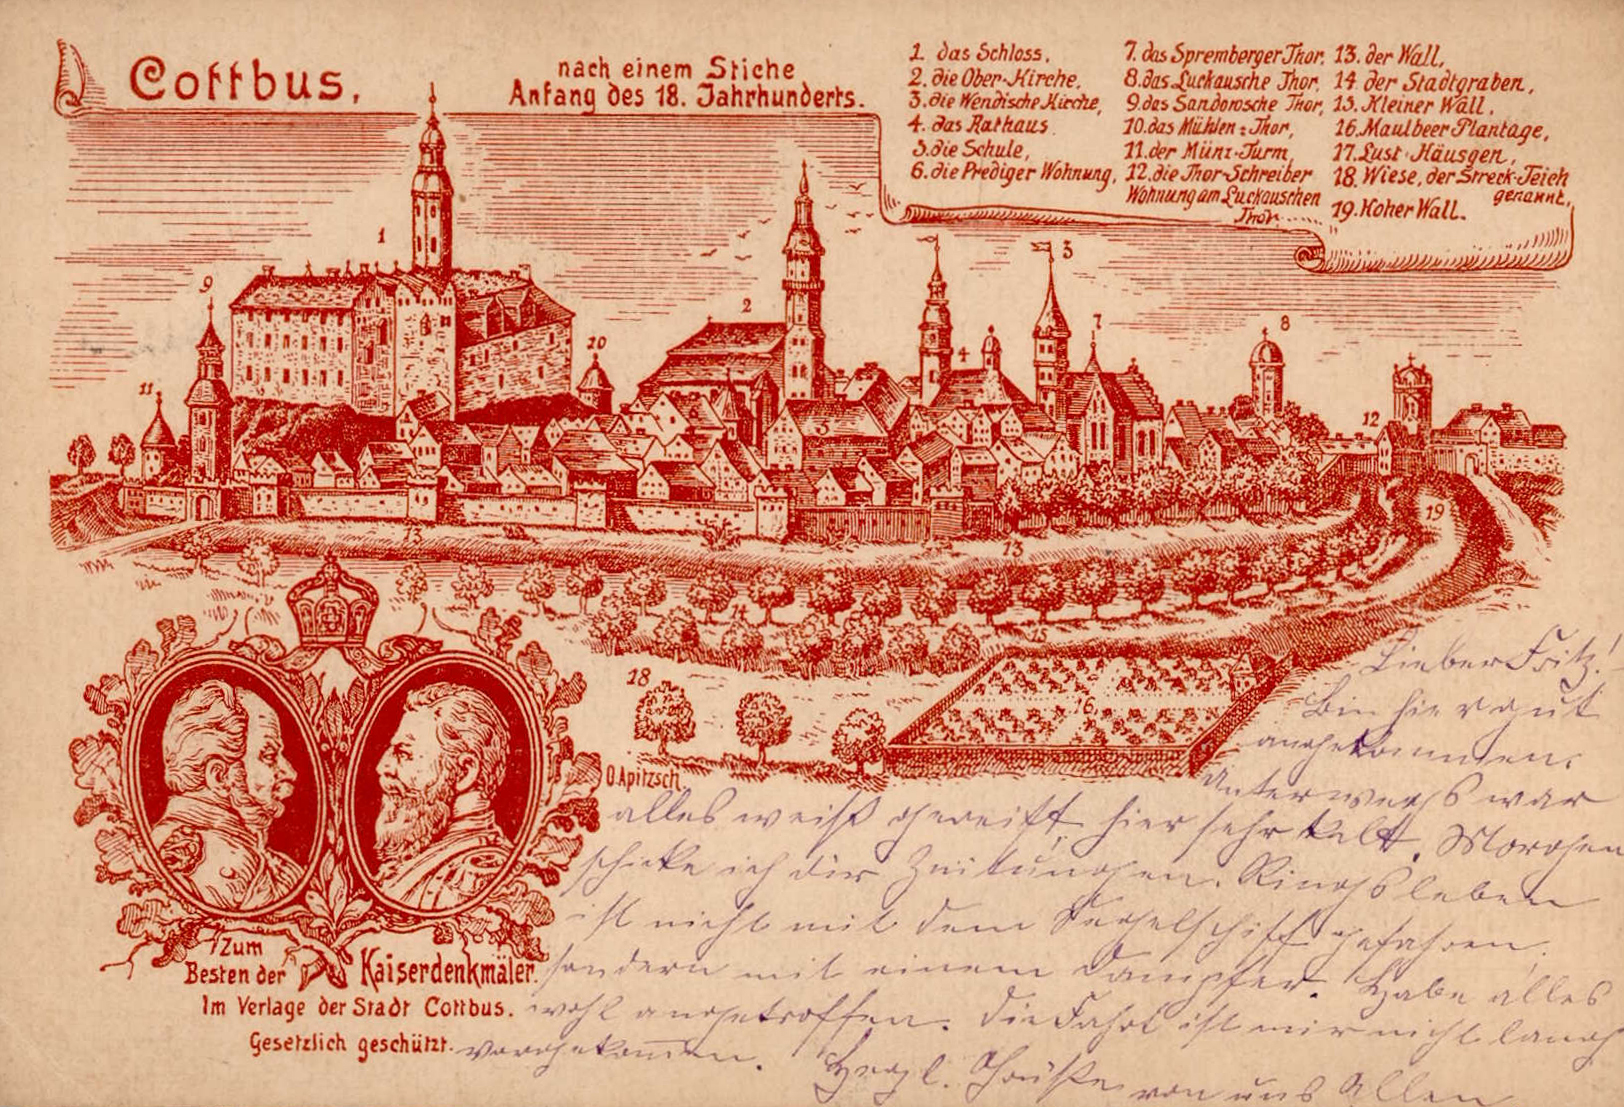 Cottbus,
nach einem Stiche
Anfang des 18. Jahrhunderts.
1. das Schloss,
2. die Ober-Kirche,
3. die Wendische Kirche,
4. das Rathaus
5. die Schule,
6. die Prediger Wohnung,
7. das Spremberger Thor,
8. das Luckausche Thor,
9. das Sandowsche Thor,
10. das Mühlen-Thor,
11. der Münz-Turm,
12. die Thor-Schreiber
Wohnung am Luckauschen
Thor.
13. der Wall,
14 der Stadtgraben,
15. Kleiner Wall,
16. Maulbeer Plantage,
17. Lust-Häusgen,
18. Wiese, der Streck-Teich
genannt,
19. Hoher Wall.
1
9
2
3
7
8
10
4
11
5
12
13
13
19
14
15
18
16
O. Apitzsch.
Zum
Besten der Kaiserdenkmäler.
Im Verlage der Stadt Cottbus.
Gesetzlich geschützt.
Lieber Fritz!
Bin hier gut
angekommen.
Unterwegs war
alles weiß gereift, hier sehr kalt. Morgen
schicke ich dir Zeitungen. Ringsleben
ist nicht mit dem Segelschiff gefahren,
sondern mit einem Dampfer. Habe alles
wohl angetroffen. Die Fahrt ist mir nicht lang
vorgekommen. Herzl. Grüße von uns Allen